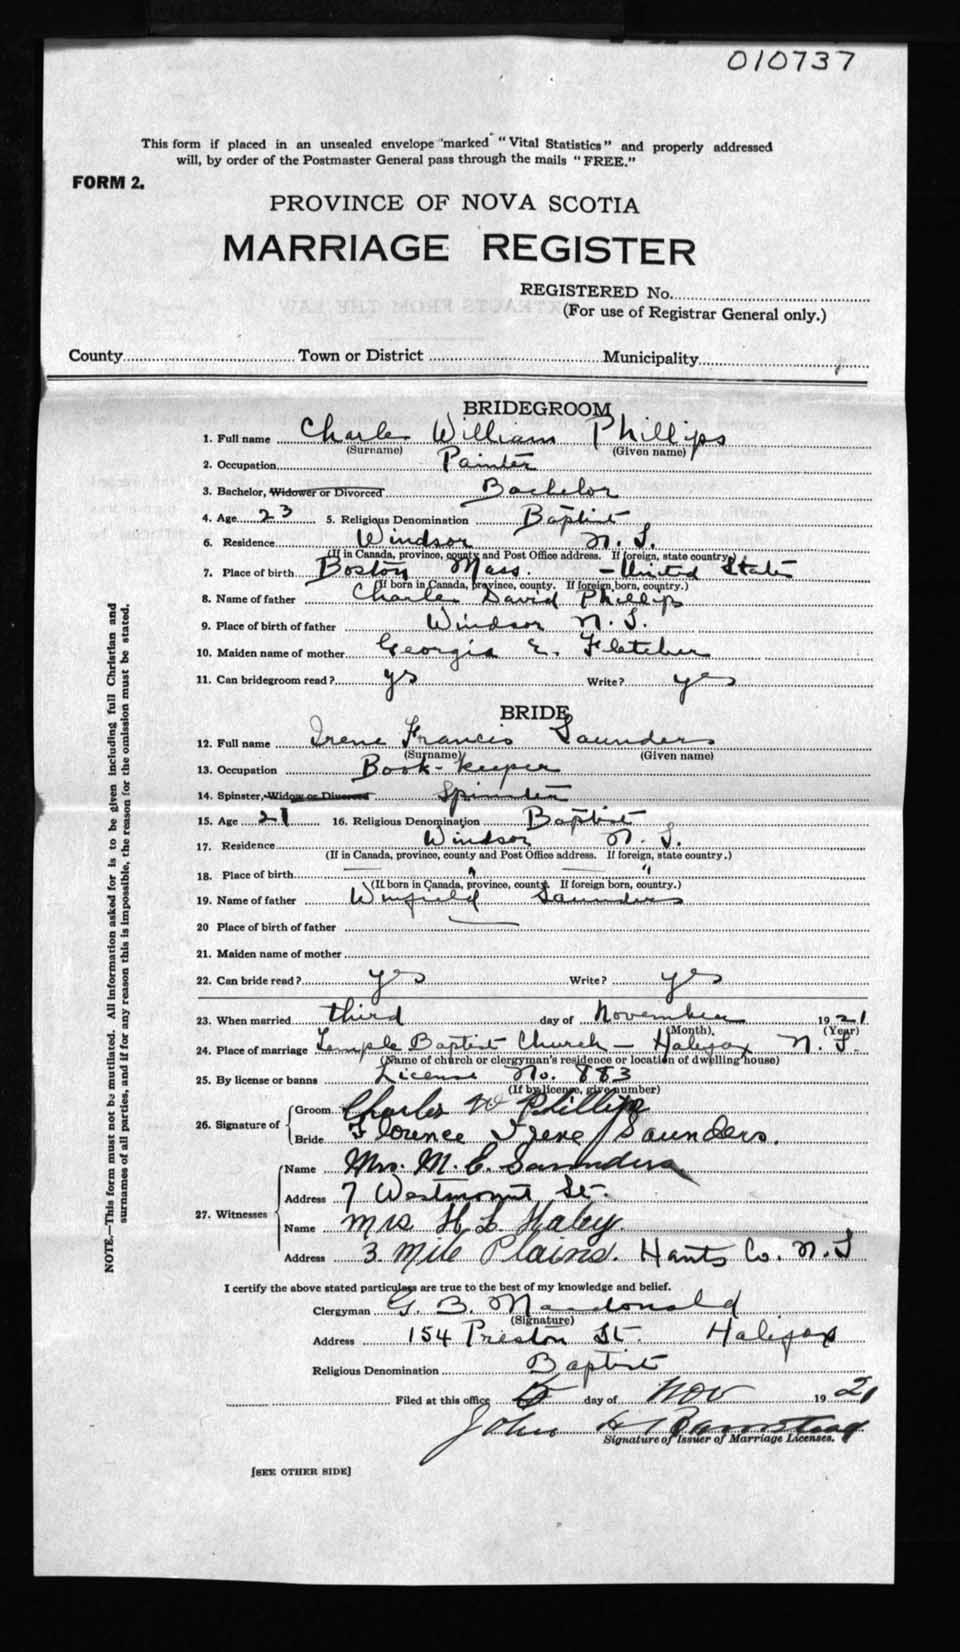 010737
This form if placed in an unsealed envelope marked "Vital Statistics" and properly addressed
will, by order of the Postmaster General pass through the mails "FREE."
FORM 2.
PROVINCE OF NOVA SCOTIA
MARRIAGE REGISTER
REGISTERED No.
(For use of Registrar General only.)
County Town or District Municipality
BRIDEGROOM
1. Full name Charles William Phillips
(Surname) (Given name)
2. Occupation Painter
3. Bachelor, Widower or Divorced Bachelor
4. Age 23 5. Religious Denomination Baptist
6. Residence Windsor N. S.
(If in Canada, province, county and Post Office address. If foreign, state country.)
7. Place of birth Boston Mass. - United States
(If born in Canada, province, county. If foreign born, country.)
8. Name of father Charles David Phillips
9. Place of birth of father Windsor N. S.
10. Maiden name of mother Georgia E. Fletcher
11. Can bridegroom read? yes Write? yes
BRIDE
12. Full name Irene Francis Saunders
(Surname) (Given name)
13. Occupation Book-keeper
14. Spinster, Widow or Divorced Spinster
15. Age 21 16. Religious Denomination Baptist
17. Residence Windsor N. S.
(If in Canada, province, county and Post Office address. If foreign, state country.)
18. Place of birth "
(If born in Canada, province, county. If foreign born, country.)
19. Name of father Winfield Saunders
20 Place of birth of father
21. Maiden name of mother
22. Can bride read? yes Write? yes
23. When married third day of November 1921
(Month) (Year)
24. Place of marriage Temple Baptist Church - Halifax N. S.
(Name of church or clergyman's residence or location of dwelling house)
25. By license or banns License No. 883
(If by license, give number)
26. Signature of
Groom Charles W Phillips
Bride Florence Irene Saunders.
27. Witnesses
Name Mrs. M. E. Saunders
Address 7 Westmount St.
Name Mrs H L Haley
Address 3 Mile Plains. Hants Co. N. S
I certify the above stated particulars are true to the best of my knowledge and belief.
Clergyman G. B. Macdonald
(Signature)
Address 154 Preston St. Halifax
Religious Denomination Baptist
Filed at this office day of Nov 1921
John H Barnstead
Signature of Issuer of Marriage Licenses.
[SEE OTHER SIDE]
NOTE.—This form must not be mutilated. All information asked for is to be given including full Christian and
surnames of all parties, and if for any reason this is impossible, the reason for the omission must be stated.